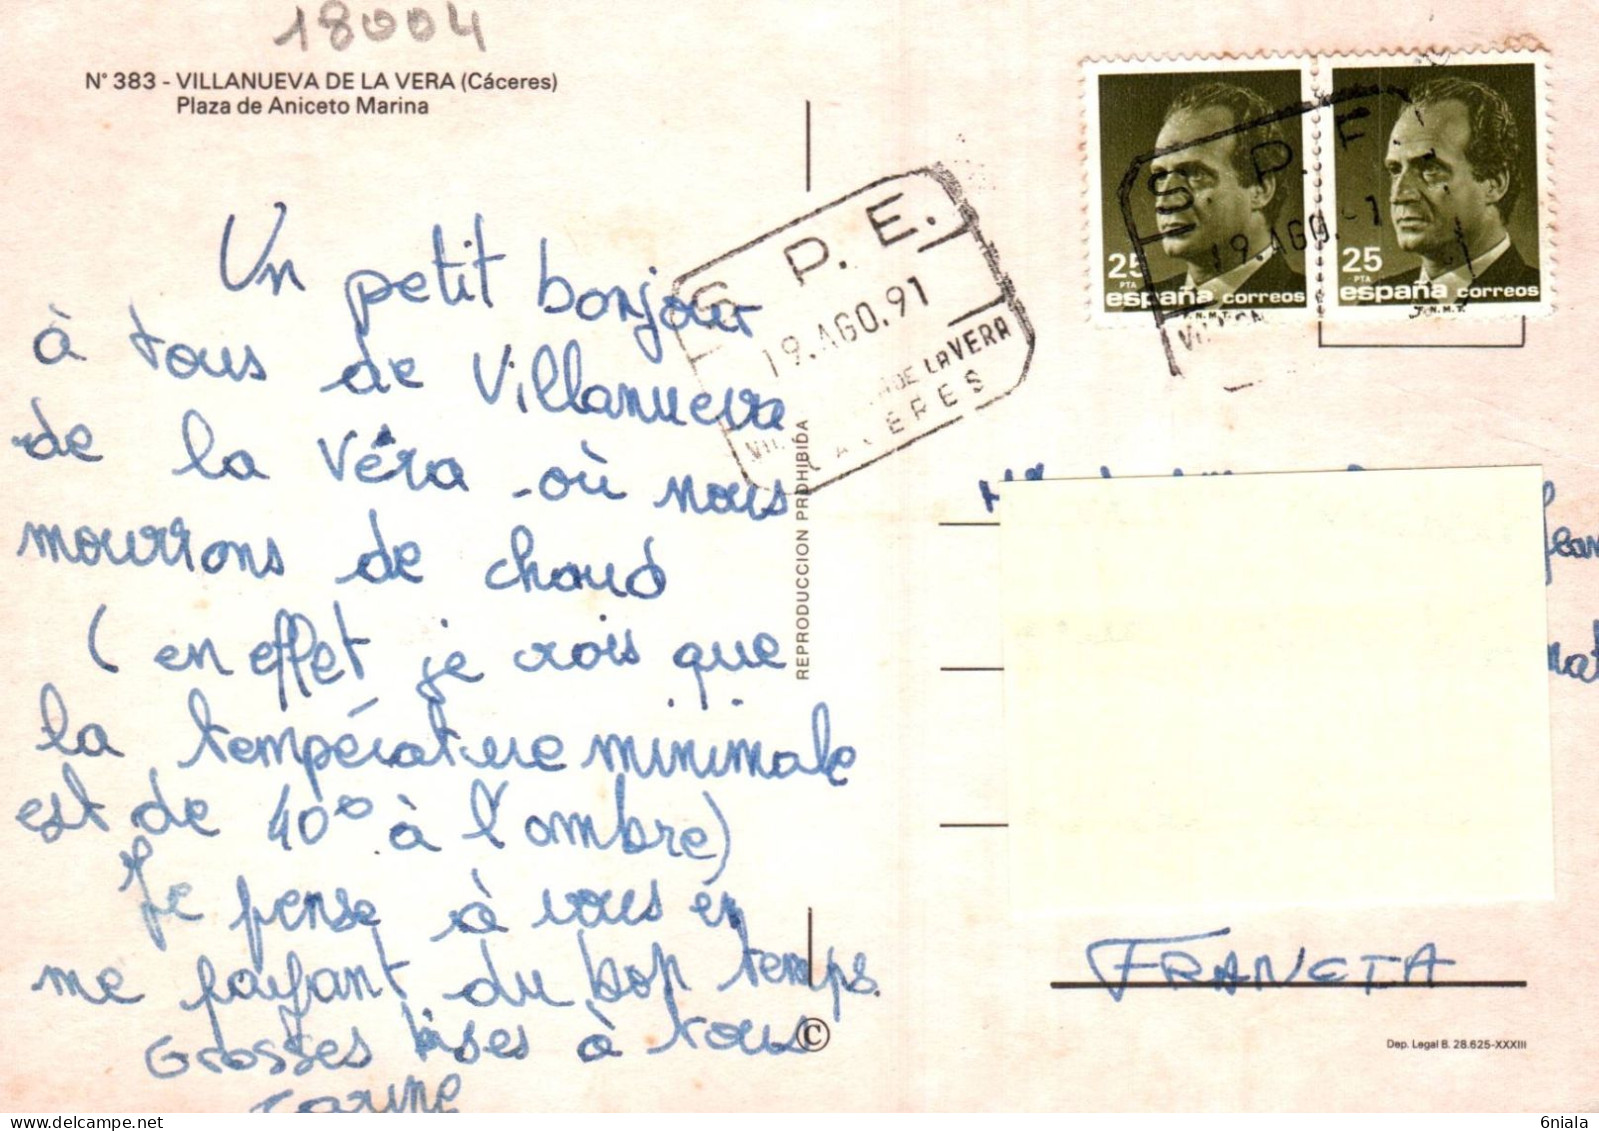 18004
N° 383 - VILLANUEVA DE LA VERA (Cáceres)
Plaza de Aniceto Marina
Un petit bonjour
à tous de Villanueva
de la Véra où nous
mourrons de chaud
(en effet je crois que
la température minimale
est de 40° à l'ombre)
Je pense à vous en
me payant du bon temps.
Grosses bises à tous
S. P. E.
19.AGO.91
DE LA VERA
CACERES
REPRODUCCION PROHIBIDA
©
25
PTA
españa correos
F.N.M.T.
25
PTA
españa correos
F.N.M.T.
S. P. E.
19.AGO.91
FRANCIA
Dep. Legal B. 28.625-XXXIII
6niala